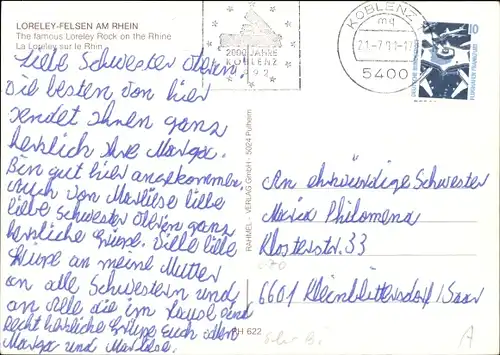 LORELEY-FELSEN AM RHEIN
The famous Loreley Rock on the Rhine
La Loreley sur le Rhin
2000 JAHRE
KOBLENZ
1992
KOBLENZ
mg
21-7
5400
10
DEUTSCHE BUNDESPOST
FLUGHAFEN FRANKFURT
Liebe Schwester Oberin
die besten von hier
sendet Ihnen ganz
herzlich Ihre Marga.
Bin gut hier angekommen.
Auch von Marliese liebe
liebe Schwester Oberin ganz
herzliche Grüße. Viele liebe
Grüße an meine Mutter
an alle Schwestern und
an alle die im Haus sind
Recht herzliche Grüße Euch allen
Marga und Marliese.
RAHMEL-VERLAG GmbH · 5024 Pulheim
RH 622
An ehrwürdige Schwester
Maria Philomena
Klosterstr. 33
6601 Kleinblittersdorf/Saar
A